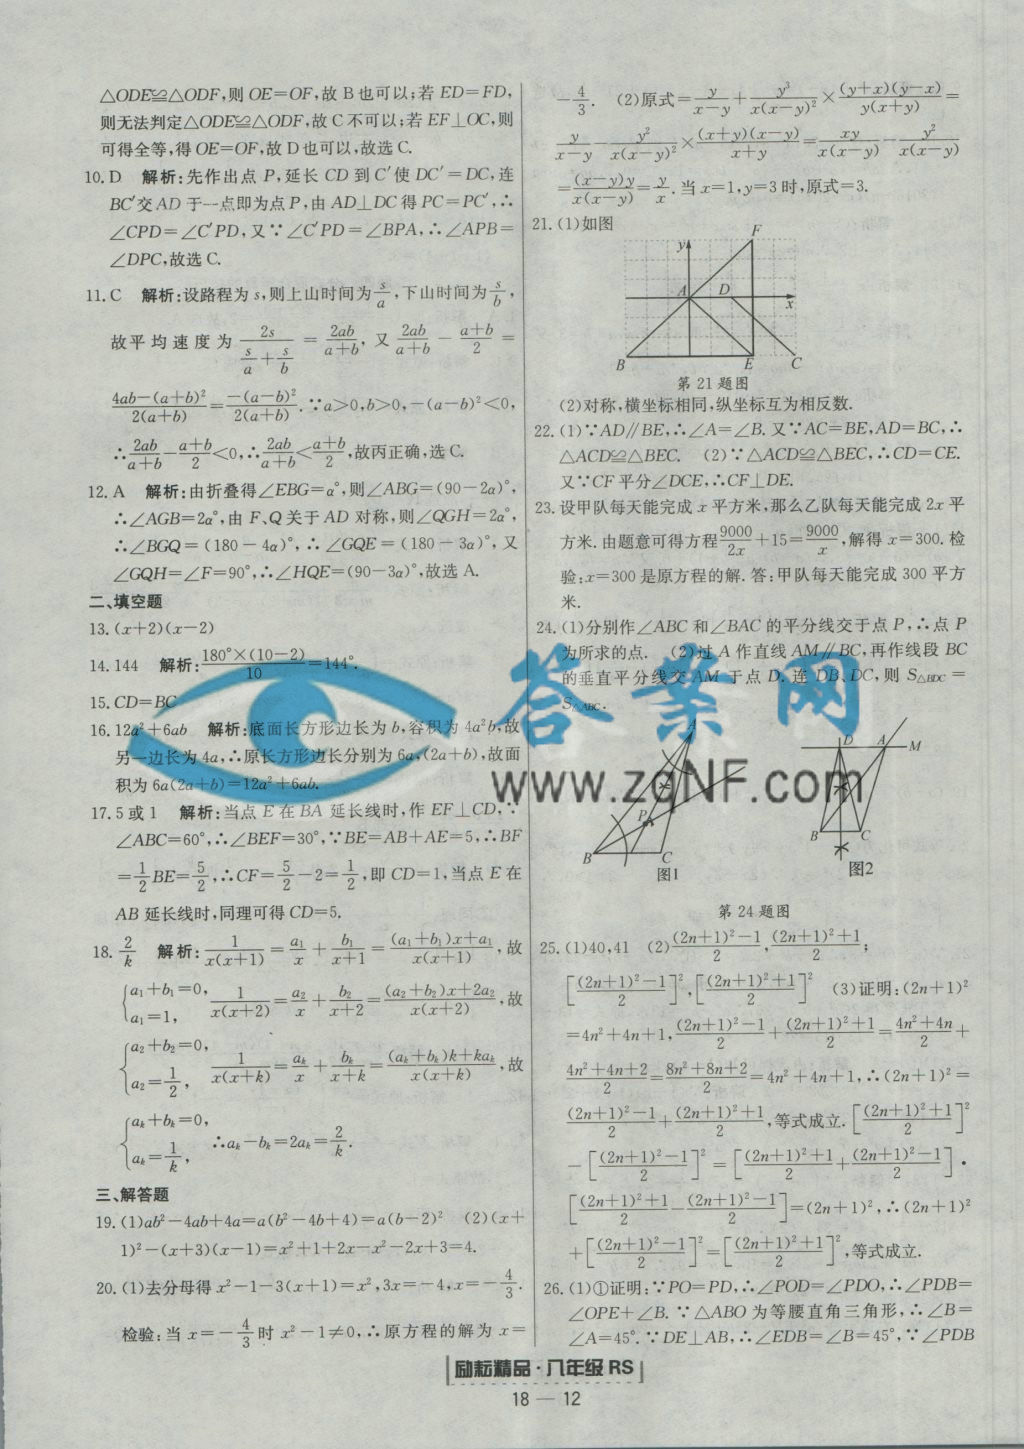 △ODE≌△ODF,则 OE=OF,故 B 也可以;若 ED=FD,
则无法判定△ODE≌△ODF,故 C 不可以;若 EF⊥OC,则
可得全等,得 OE=OF,故 D 也可以,故选 C.
10. D 解析:先作出点 P,延长 CD 到 C′使 DC′=DC,连
BC′交 AD 于一点即为点 P,由 AD⊥DC 得 PC=PC′,∴
∠CPD=∠C′PD,又∵∠C′PD=∠BPA,∴∠APB=
∠DPC,故选 C.
11. C 解析:设路程为 s,则上山时间为 s/a,下山时间为 s/b,
故平均速度为 2s/(s/a+s/b) = 2ab/(a+b), 又 2ab/(a+b) − (a+b)/2 =
[4ab−(a+b)²]/[2(a+b)] = [−(a−b)²]/[2(a+b)].∵a>0,b>0,−(a−b)²<0,
∴2ab/(a+b)−(a+b)/2<0,∴2ab/(a+b)<(a+b)/2,故丙正确,选 C.
12. A 解析:由折叠得∠EBG=α°,则∠ABG=(90−2α)°,
∴∠AGB=2α°,由 F、Q 关于 AD 对称,则∠QGH=2α°,
∴∠BGQ=(180−4α)°,∴∠GQE=(180−3α)°,又
∠GQH=∠F=90°,∴∠HQE=(90−3α)°,故选 A.
二、填空题
13. (x+2)(x−2)
14. 144 解析:180°×(10−2)/10=144°.
15. CD=BC
16. 12a²+6ab 解析:底面长方形边长为 b,容积为 4a²b,故
另一边长为 4a,∴原长方形边长分别为 6a,(2a+b),故面
积为 6a(2a+b)=12a²+6ab.
17. 5 或 1 解析:当点 E 在 BA 延长线时,作 EF⊥CD,∵
∠ABC=60°,∴∠BEF=30°,∵BE=AB+AE=5,∴BF
=1/2BE=5/2,∴CF=5/2−2=1/2,即 CD=1,当点 E 在
AB 延长线时,同理可得 CD=5.
18. 2/k 解析:1/[x(x+1)]=a₁/x+b₁/(x+1)=[(a₁+b₁)x+a₁]/[x(x+1)],故
{a₁+b₁=0, a₁=1, 1/[x(x+2)]=a₂/x+b₂/(x+2)=[(a₂+b₂)x+2a₂]/[x(x+2)],故
{a₂+b₂=0, a₂=1/2, 1/[x(x+k)]=aₖ/x+bₖ/(x+k)=[(aₖ+bₖ)k+kaₖ]/[x(x+k)],故
{aₖ+bₖ=0, aₖ=1/k, ∴aₖ−bₖ=2aₖ=2/k.
三、解答题
19. (1)ab²−4ab+4a=a(b²−4b+4)=a(b−2)² (2)(x+
1)²−(x+3)(x−1)=x²+1+2x−x²−2x+3=4.
20. (1)去分母得 x²−1−3(x+1)=x²,3x=−4,x=−4/3.
检验:当 x=−4/3 时 x²−1≠0,∴原方程的解为 x=
−4/3. (2)原式=y/(x−y)+y³/[x(x−y)²]×[(y+x)(y−x)]/[y(x+y)]=
y/(x−y)−y²/[x(x−y)²]×[(x+y)(x−y)]/(x+y)=xy/[x(x−y)]−y²/[x(x−y)]
=[(x−y)y]/[x(x−y)]=y/x.当 x=1,y=3 时,原式=3.
21. (1)如图
y
F
A
D
x
B
E
C
第 21 题图
(2)对称,横坐标相同,纵坐标互为相反数.
22. (1)∵AD∥BE,∴∠A=∠B. 又∵AC=BE,AD=BC,∴
△ACD≌△BEC. (2)∵△ACD≌△BEC,∴CD=CE.
又∵CF 平分∠DCE,∴CF⊥DE.
23. 设甲队每天能完成 x 平方米,那么乙队每天能完成 2x 平
方米.由题意可得方程9000/2x+15=9000/x,解得 x=300. 检
验:x=300 是原方程的解.答:甲队每天能完成 300 平方
米.
24. (1)分别作∠ABC 和∠BAC 的平分线交于点 P,∴点 P
为所求的点. (2)过 A 作直线 AM∥BC,再作线段 BC
的垂直平分线交 AM 于点 D.连 DB、DC,则 S△BDC=
S△ABC.
A
P
B
C
图1
D
A
M
B
C
图2
第 24 题图
25. (1)40,41 (2)[(2n+1)²−1]/2,[(2n+1)²+1]/2;
[((2n+1)²−1)/2]²,[((2n+1)²+1)/2]² (3)证明:(2n+1)²
=4n²+4n+1,[(2n+1)²−1]/2+[(2n+1)²+1]/2=(4n²+4n)/2+
(4n²+4n+2)/2=(8n²+8n+2)/2=4n²+4n+1,∴(2n+1)²=
[(2n+1)²−1]/2+[(2n+1)²+1]/2,等式成立.[((2n+1)²+1)/2]²
−[((2n+1)²−1)/2]²=[((2n+1)²+1)/2+((2n+1)²−1)/2]·
[((2n+1)²+1)/2−((2n+1)²−1)/2]=(2n+1)²,∴(2n+1)²
+[((2n+1)²−1)/2]²=[((2n+1)²+1)/2]²,等式成立.
26. (1)①证明:∵PO=PD,∴∠POD=∠PDO,∴∠PDB=
∠OPE+∠B.∵△ABO 为等腰直角三角形,∴∠B=
∠A=45°.∵DE⊥AB,∴∠EDB=∠B=45°,∵∠PDB
答案网
www.zqNF.com
励耘精品·八年级 RS
18 — 12